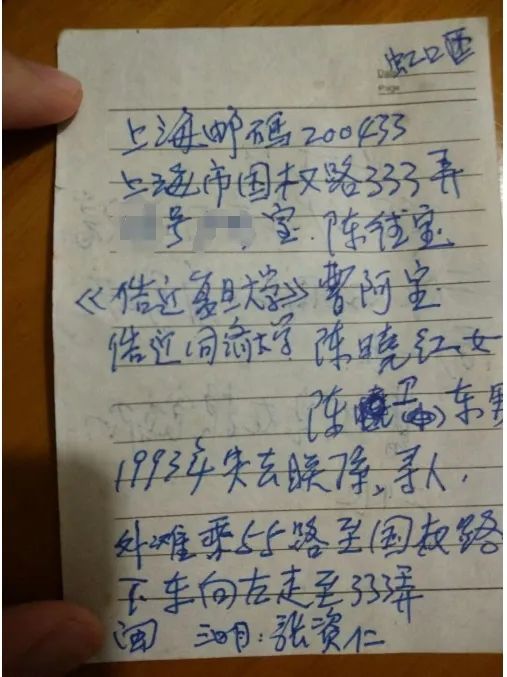 虹口区
Date
Page
上海邮码200433
上海市国权路333弄
号 室.陈佳宝
《借近复旦大学》曹阿宝
借近同济大学 陈晓红女
陈卫东男
1993年失去联系,寻人.
外滩乘55路至国权路
下车向左走至333弄
闽 三明:张资仁